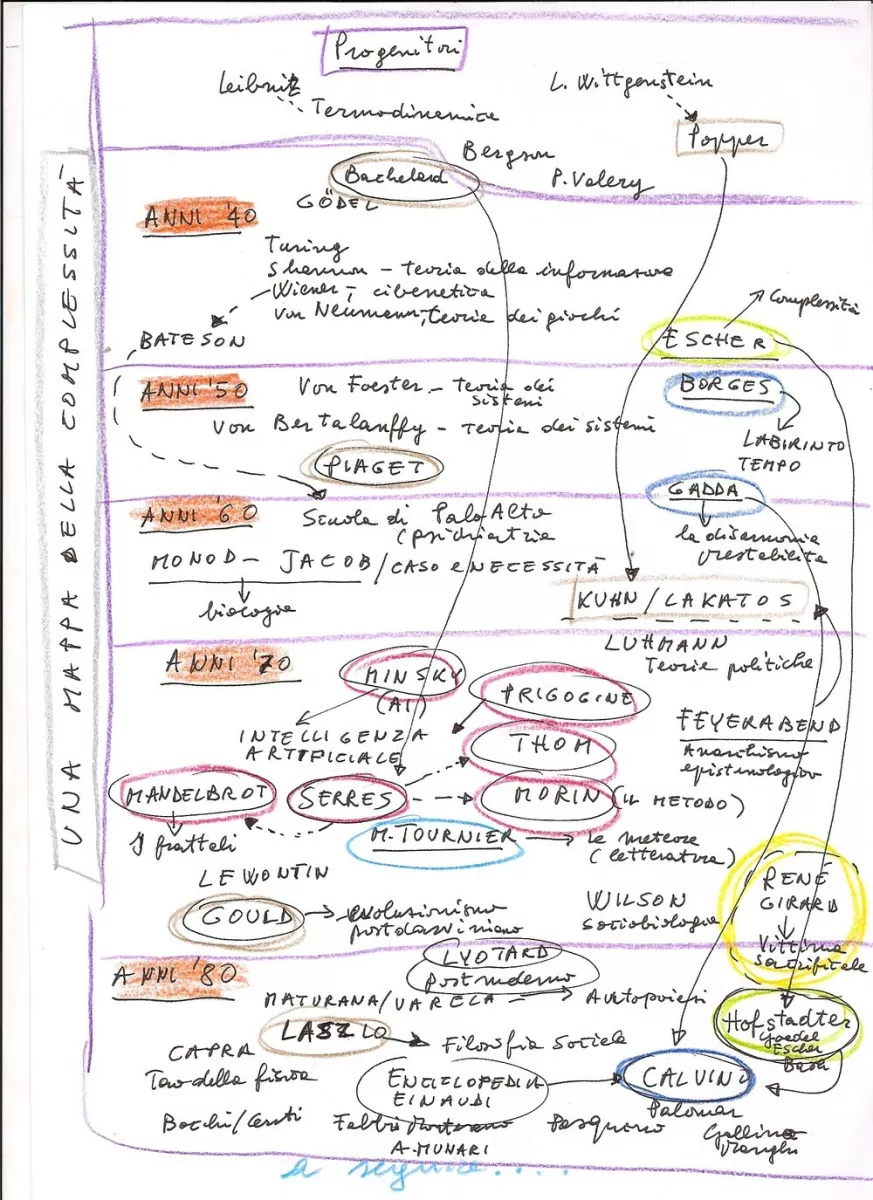 UNA MAPPA DELLA COMPLESSITÁ
Progenitori
Leibnitz
L. Wittgenstein
Termodinamica
Popper
Bergson
Bachelard
P. Valery
GÖDEL
ANNI '40
Turing
Shannon - teoria della informazione
Wiener - cibernetica
Von Neümann, teorie dei giochi
Complessità
BATESON
ESCHER
ANNI '50
Von Foester - teoria dei
sistemi
BORGES
Von Bertalanffy - teoria dei sistemi
LABIRINTO
TEMPO
PIAGET
GADDA
ANNI '60
Scuola di Palo Alto
(psichiatria
la disarmonia
prestabilita
MONOD - JACOB / CASO e NECESSITÀ
biologia
KUHN / LAKATOS
LUHMANN
Teorie politiche
ANNI '70
MINSKY
(AI)
PRIGOGINE
INTELLIGENZA
ARTIFICIALE
THOM
FEYERABEND
Anarchismo
epistemologico
MANDELBROT
SERRES
MORIN (IL METODO)
I frattali
M. TOURNIER
le meteore
(letteratura)
LEWONTIN
RENÉ
GIRARD
GOULD
evoluzionismo
postdarwiniano
WILSON
sociobiologia
Vittima
sacrificale
LYOTARD
postmoderno
ANNI '80
MATURANA / VARELA
Autopoiesi
Hofstadter
Goedel
Escher
Bach
LASZLO
Filosofia Sociale
CAPRA
Tao della fisica
ENCICLOPEDIA
EINAUDI
CALVINO
Palomar
Bocchi/Ceruti
Fabbri
Pasquino
A. MUNARI
a seguire....